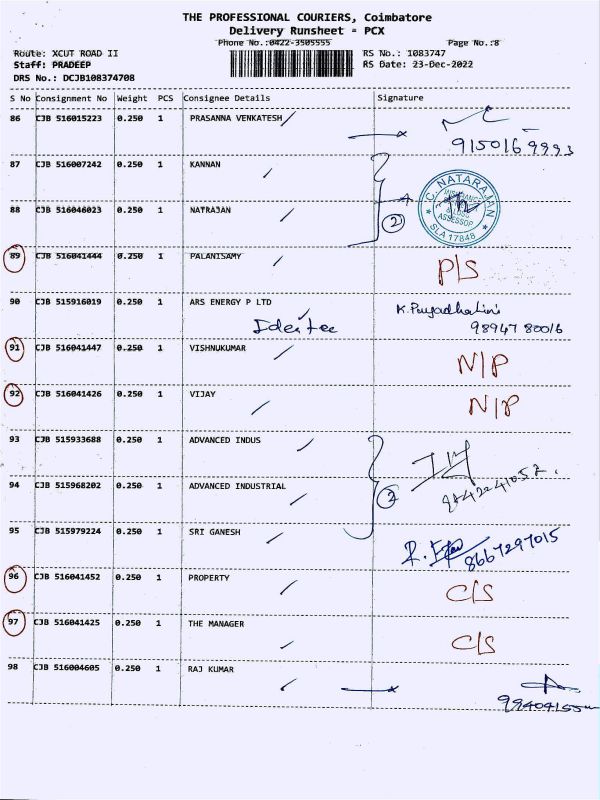 THE PROFESSIONAL COURIERS, Coimbatore
Delivery Runsheet = PCX
Phone No.:0422-3505555 Page No.:8
Route: XCUT ROAD II RS No.: 1083747
Staff: PRADEEP RS Date: 23-Dec-2022
DRS No.: DCJB108374708
S No Consignment No Weight PCS Consignee Details Signature
86 CJB 516015223 0.250 1 PRASANNA VENKATESH
9150169993
87 CJB 516007242 0.250 1 KANNAN
C. NATARAJAN
ASSESSOR
SLA 17848
88 CJB 516046023 0.250 1 NATRAJAN
2
89 CJB 516041444 0.250 1 PALANISAMY
P/S
90 CJB 515916019 0.250 1 ARS ENERGY P LTD
98947 80016
91 CJB 516041447 0.250 1 VISHNUKUMAR
N/P
92 CJB 516041426 0.250 1 VIJAY
N/P
93 CJB 515933688 0.250 1 ADVANCED INDUS
94 CJB 515968202 0.250 1 ADVANCED INDUSTRIAL
2
95 CJB 515979224 0.250 1 SRI GANESH
8667297015
96 CJB 516041452 0.250 1 PROPERTY
C/S
97 CJB 516041425 0.250 1 THE MANAGER
C/S
98 CJB 516004605 0.250 1 RAJ KUMAR